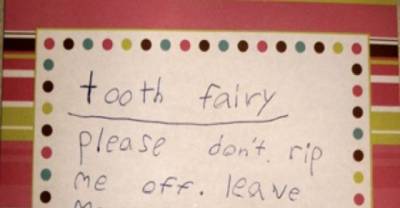 tooth fairy
please don't. rip
me off. leave